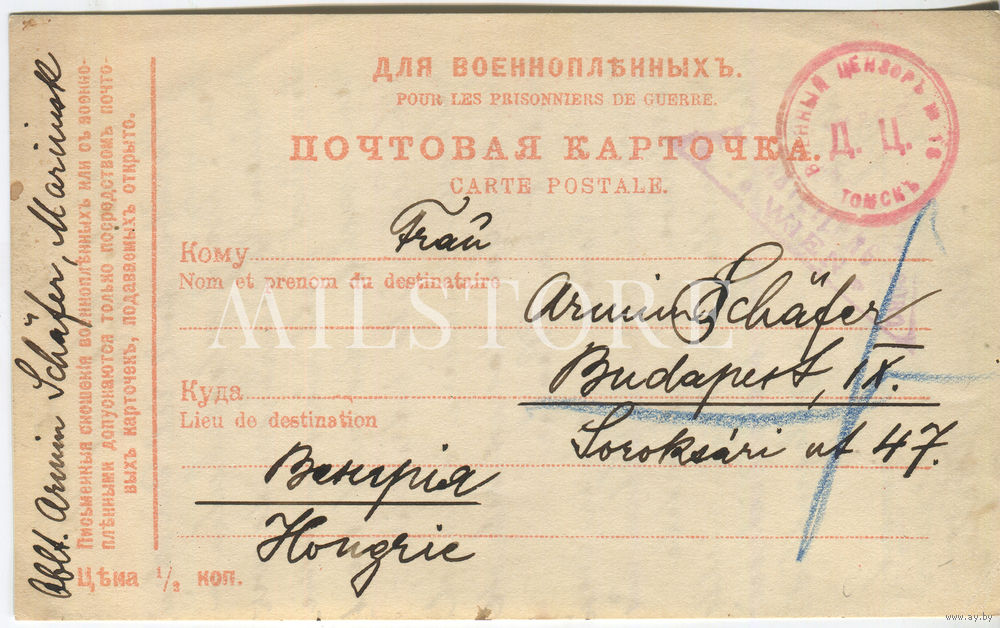 ДЛЯ ВОЕННОПЛѢННЫХЪ.
POUR LES PRISONNIERS DE GUERRE.
ПОЧТОВАЯ КАРТОЧКА.
CARTE POSTALE.
ВОЕННЫЙ ЦЕНЗОРЪ № 18
Д. Ц.
ТОМСКЪ
WIEN
Кому Frau
Nom et prenom du destinataire
Armin Schäfer
MILSTORE
Budapest, IX.
Куда
Lieu de destination
Soroksári ut 47.
Венгрія
Hongrie
Цѣна 1/2 коп.
Oblt. Armin Schäfer, Mariinsk
Письменныя сношенія военноплѣнныхъ или съ военно-
плѣнными допускаются только посредствомъ почто-
выхъ карточекъ, подаваемыхъ открыто.
www.ay.by